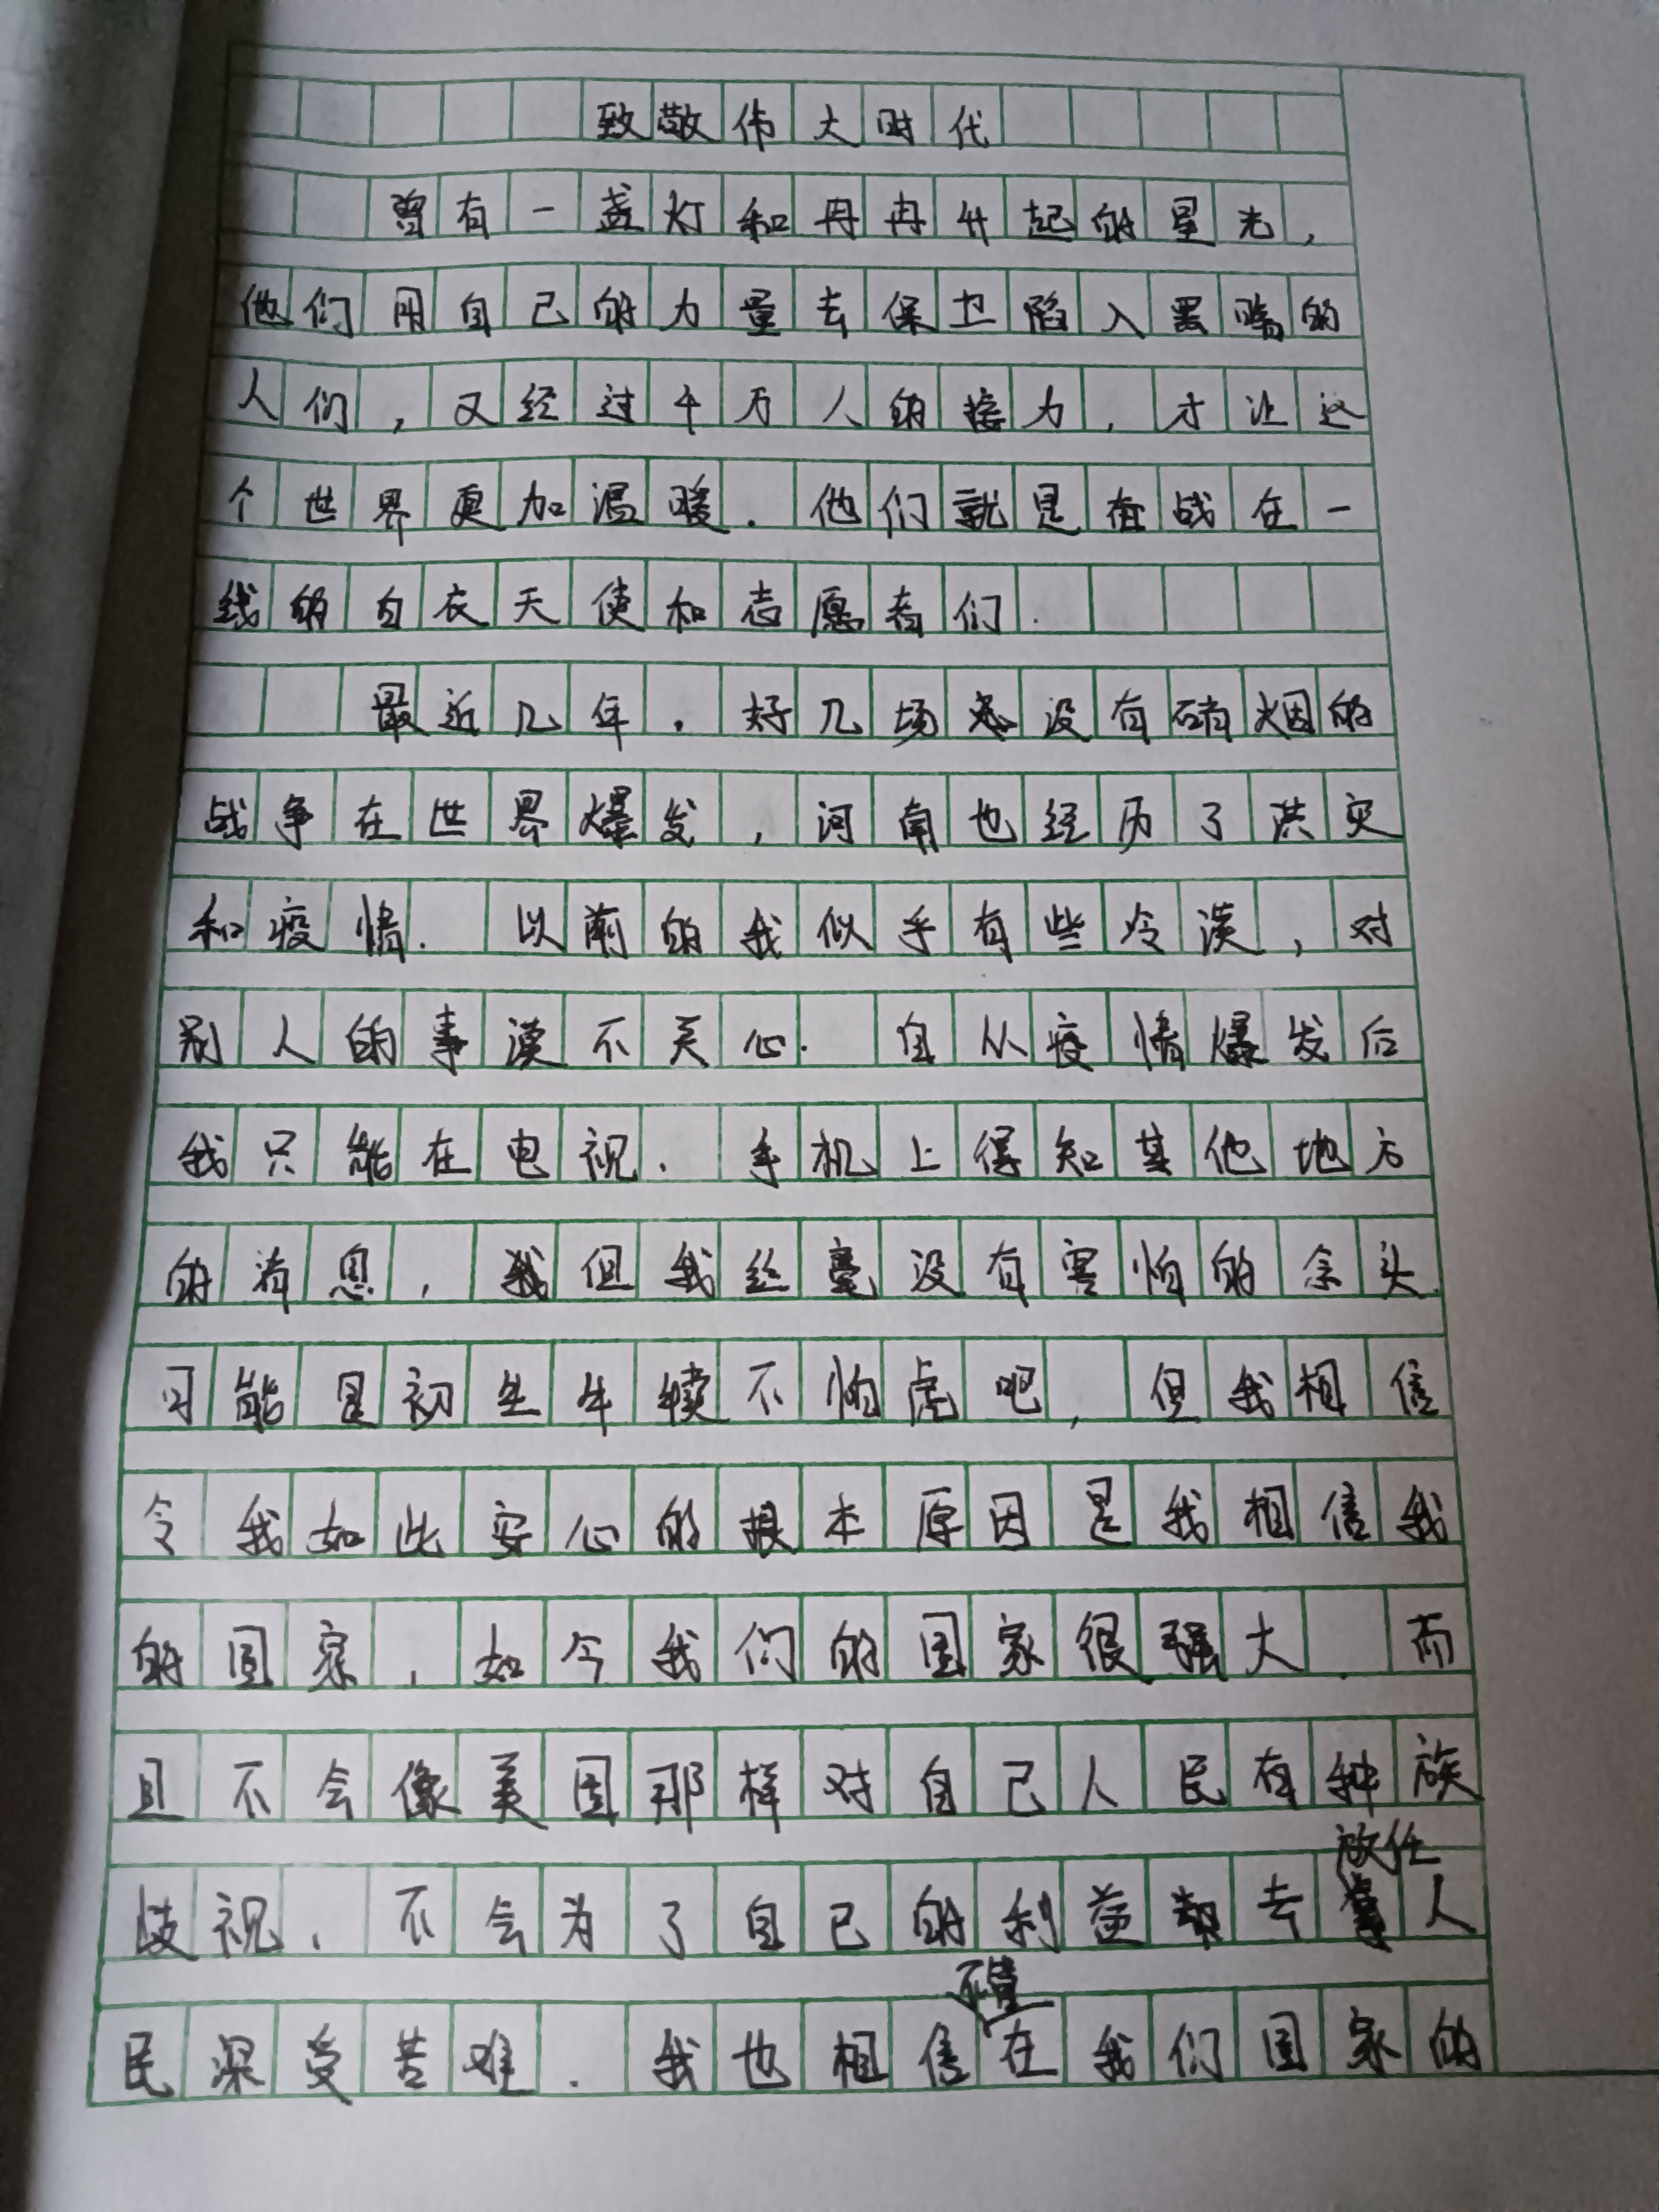 致敬伟大时代
曾有一盏灯和冉冉升起的星光，
他们用自己的力量去保卫陷入黑暗的
人们，又经过千万人的接力，才让这
个世界更加温暖．他们就是奋战在一
线的白衣天使和志愿者们．
最近几年，好几场没有硝烟的
战争在世界爆发，河南也经历了洪灾
和疫情．以前的我似乎有些冷漠，对
别人的事漠不关心．自从疫情爆发后
我只能在电视．手机上得知其他地方
的消息，但我丝毫没有害怕的念头．
可能是初生牛犊不怕虎吧，但我相信
令我如此安心的根本原因是我相信我
的国家，如今我们的国家很强大．而
且不会像美国那样对自己人民有种族
放任
歧视．不会为了自己的利益去人
民深受苦难．我也相信在我们国家的